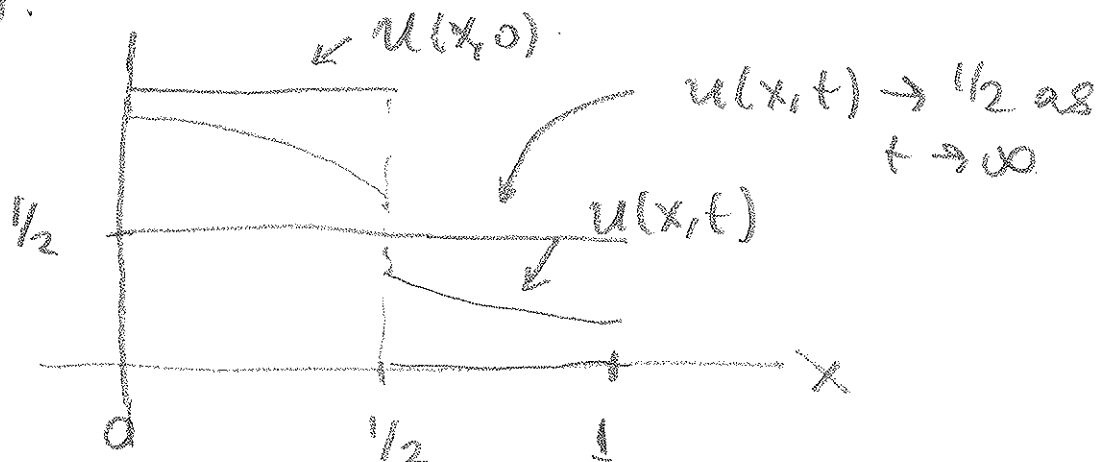 u(x,0).
u(x,t) → 1/2 as
t → ∞
1/2
u(x,t)
x
0
1/2
1